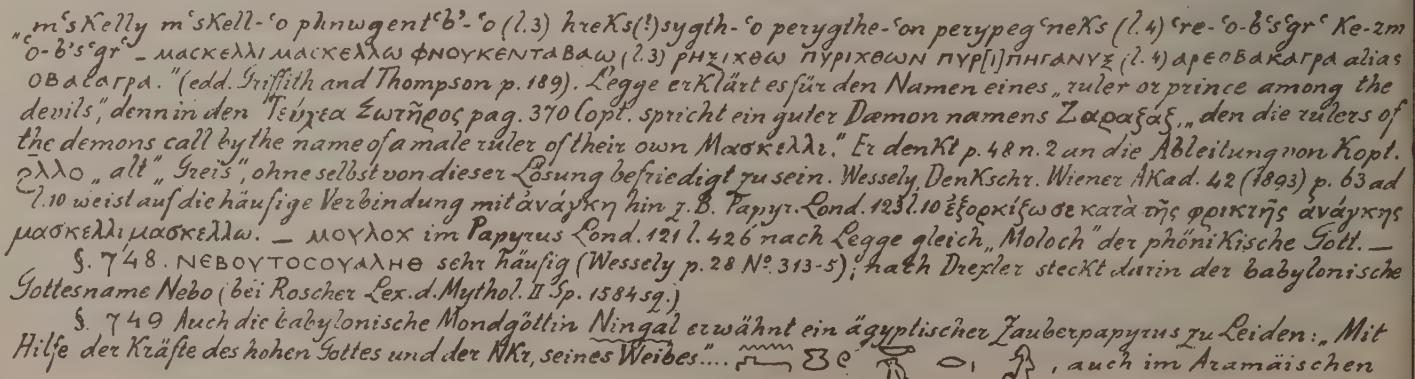 „mʿsKelly mʿsKell-ʿo phnwgentʿbʾ-ʿo (l.3) hreKs(!)sygth-ʿo perygthe-ʿon perypegʿneKs (l.4) ʿre-ʿo-bʿsʿgrʿ Ke-zm
ʿo-bʾsʿgrʿ — ΜΑCΚΕΛΛΙ ΜΑCΚΕΛΛΩ ΦΝΟΥΚΕΝΤΑΒΑΩ (l.3) ΡΗΞΙΧΘΩ ΠΥΡΙΧΘΩΝ ΠΥΡ[Ι]ΠΗΓΑΝΥΞ (l.4) ΑΡΕΟΒΑΚΑΓΡΑ alias
ΟΒΑCΑΓΡΑ.“ (edd. Griffith and Thompson p. 189). Legge erKlärt es für den Namen eines „ruler or prince among the
devils“, denn in den Τεύχεα Σωτῆρος pag. 370 Copt. spricht ein guter Dæmon namens Ζαραξαξ, „den die rulers of
the demons call by the name of a male ruler of their own Μασκελλι.“ Er denKt p. 48 n. 2 an die Ableitung von Kopt.
ϩλλο „alt“, Greis“, ohne selbst von dieser Lösung befriedigt zu sein. Wessely, DenKschr. Wiener AKad. 42 (1893) p. 63 ad
l. 10 weist auf die häufige Verbindung mit ἀνάγκη hin z. B. Papyr. Lond. 123 l. 10 ἐξορκίζω σε κατὰ τῆς φρικτῆς ἀνάγκης
μασκελλι μασκελλω. — ΜΟΥΛΟΧ im Papyrus Lond. 121 l. 426 nach Legge gleich „Moloch“ der phöniKische Gott. —
§. 748. ΝΕΒΟΥΤΟCΟΥΑΛΗΘ sehr häufig (Wessely p. 28 No. 313-5); nach Drexler steckt darin der babylonische
Gottesname Nebo (bei Roscher Lex. d. Mythol. II Sp. 1584 sq.)
§. 749 Auch die babylonische Mondgöttin Ningal erwähnt ein ägyptischer Zauberpapyrus zu Leiden: „Mit
Hilfe der Kräfte des hohen Gottes und der NKr, seines Weibes“.... , auch im Aramäischen